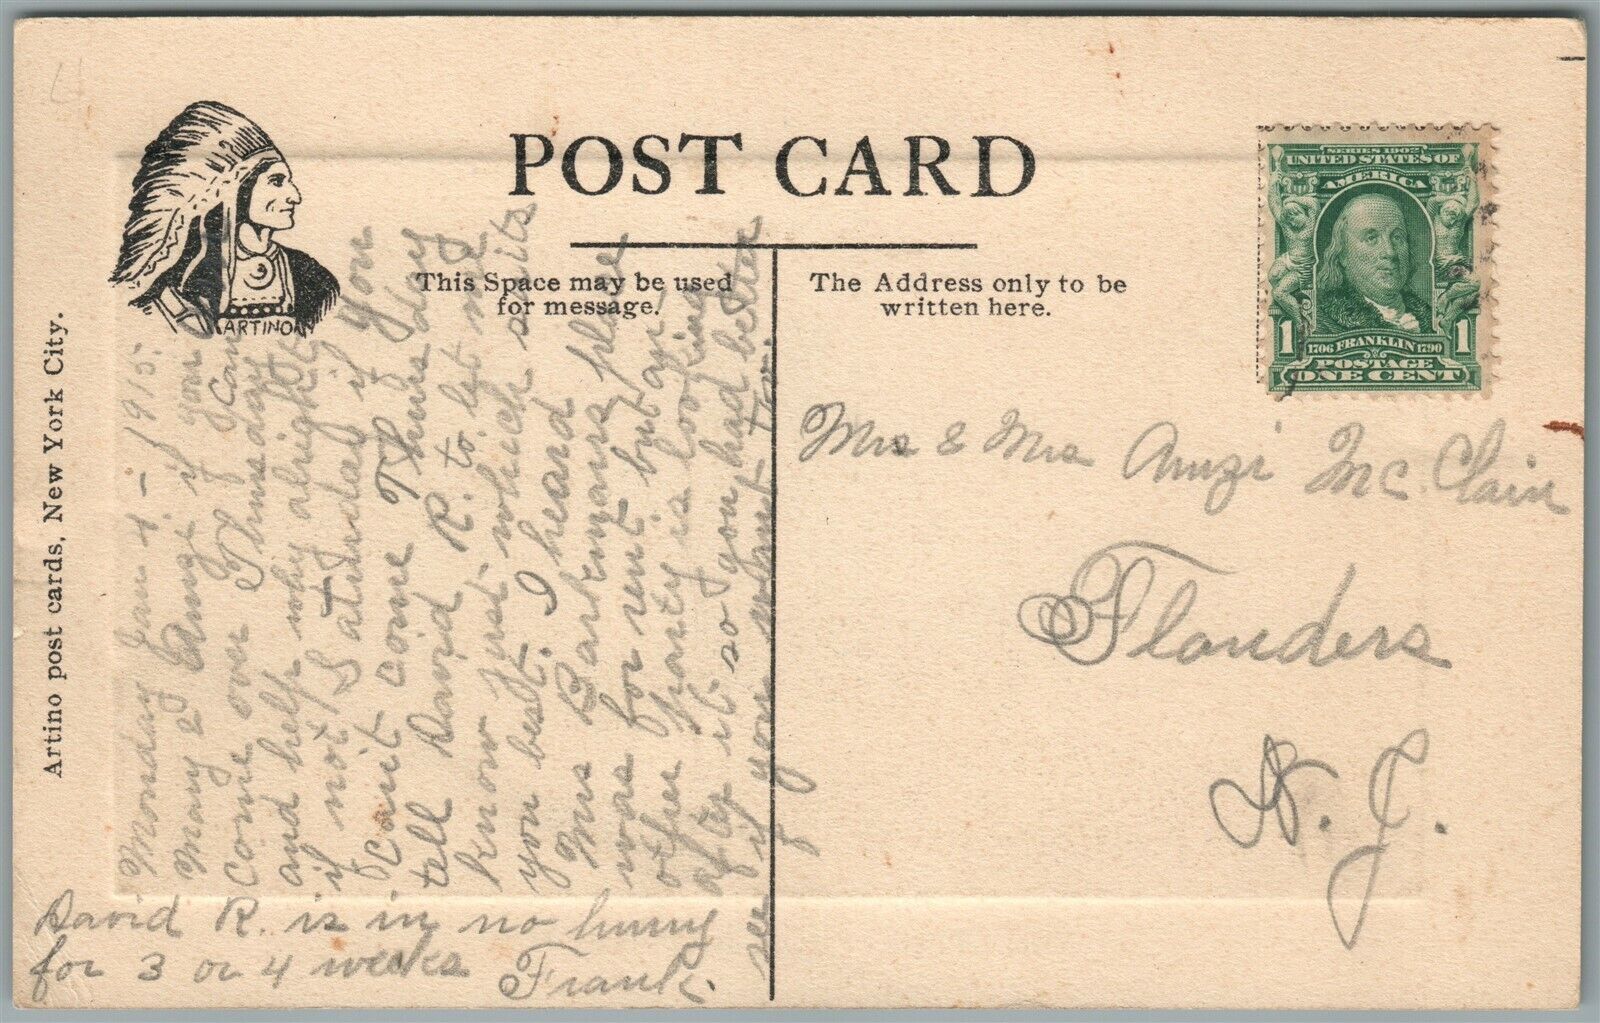 POST CARD
This Space may be used
for message.
The Address only to be
written here.
ARTINO
Artino post cards, New York City.
SERIES 1902
UNITED STATES OF
AMERICA
1 1
1706 FRANKLIN 1790
POSTAGE
ONE CENT
Monday Jan 4 - 1915.
May & Amzi if you
come over Thursday I can
and help why alright
if not Saturday if you
can't come Thursday
tell David R. to let me
know just which suits
you best. I heard
Mrs Bartmans place
was for rent but an-
other party is looking
after it so you had better
see if you want to.
David R. is in no hurry
for 3 or 4 weeks
Frank.
Mrs & Mrs Amzi Mc Clain
Flanders
N. J.